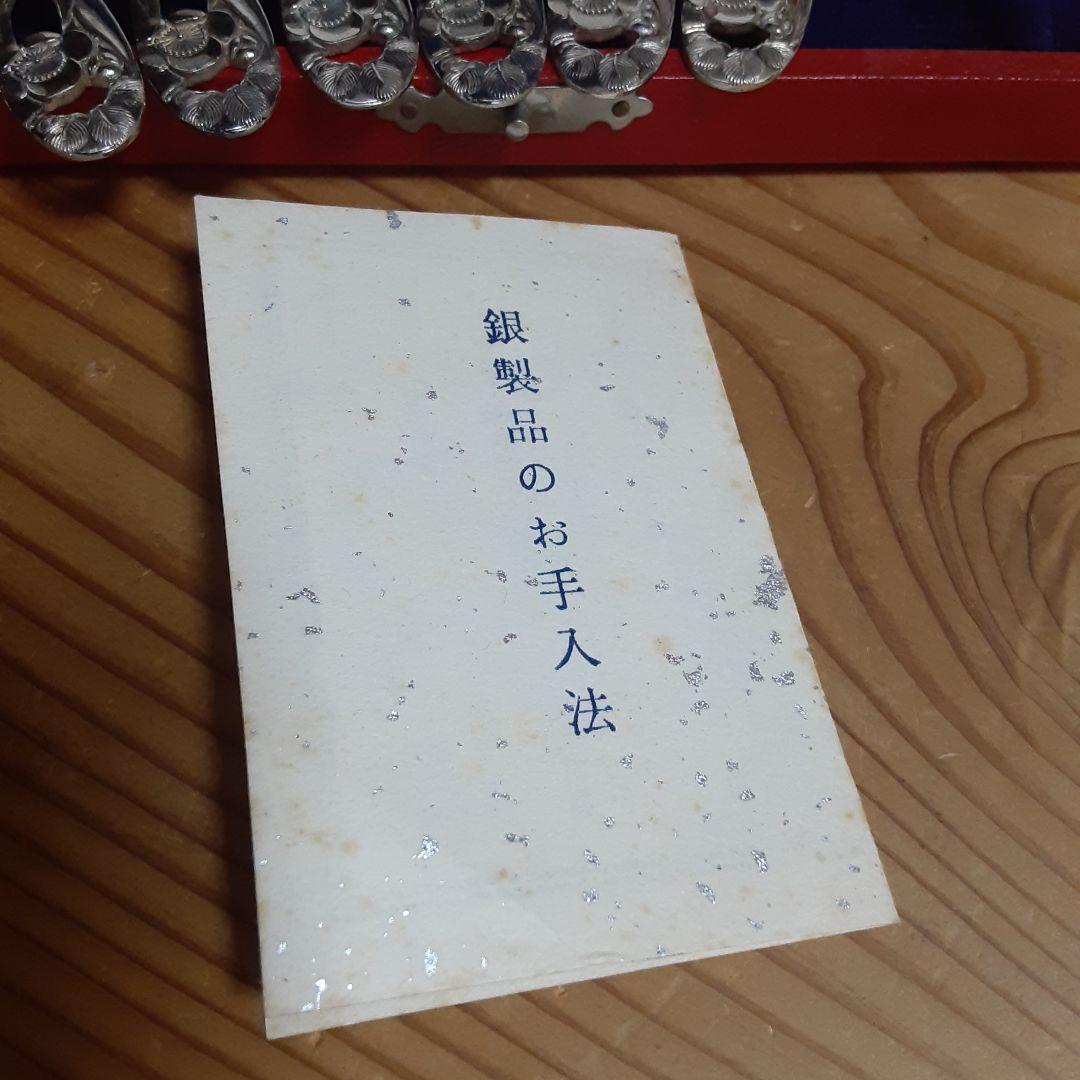 銀製品のお手入法